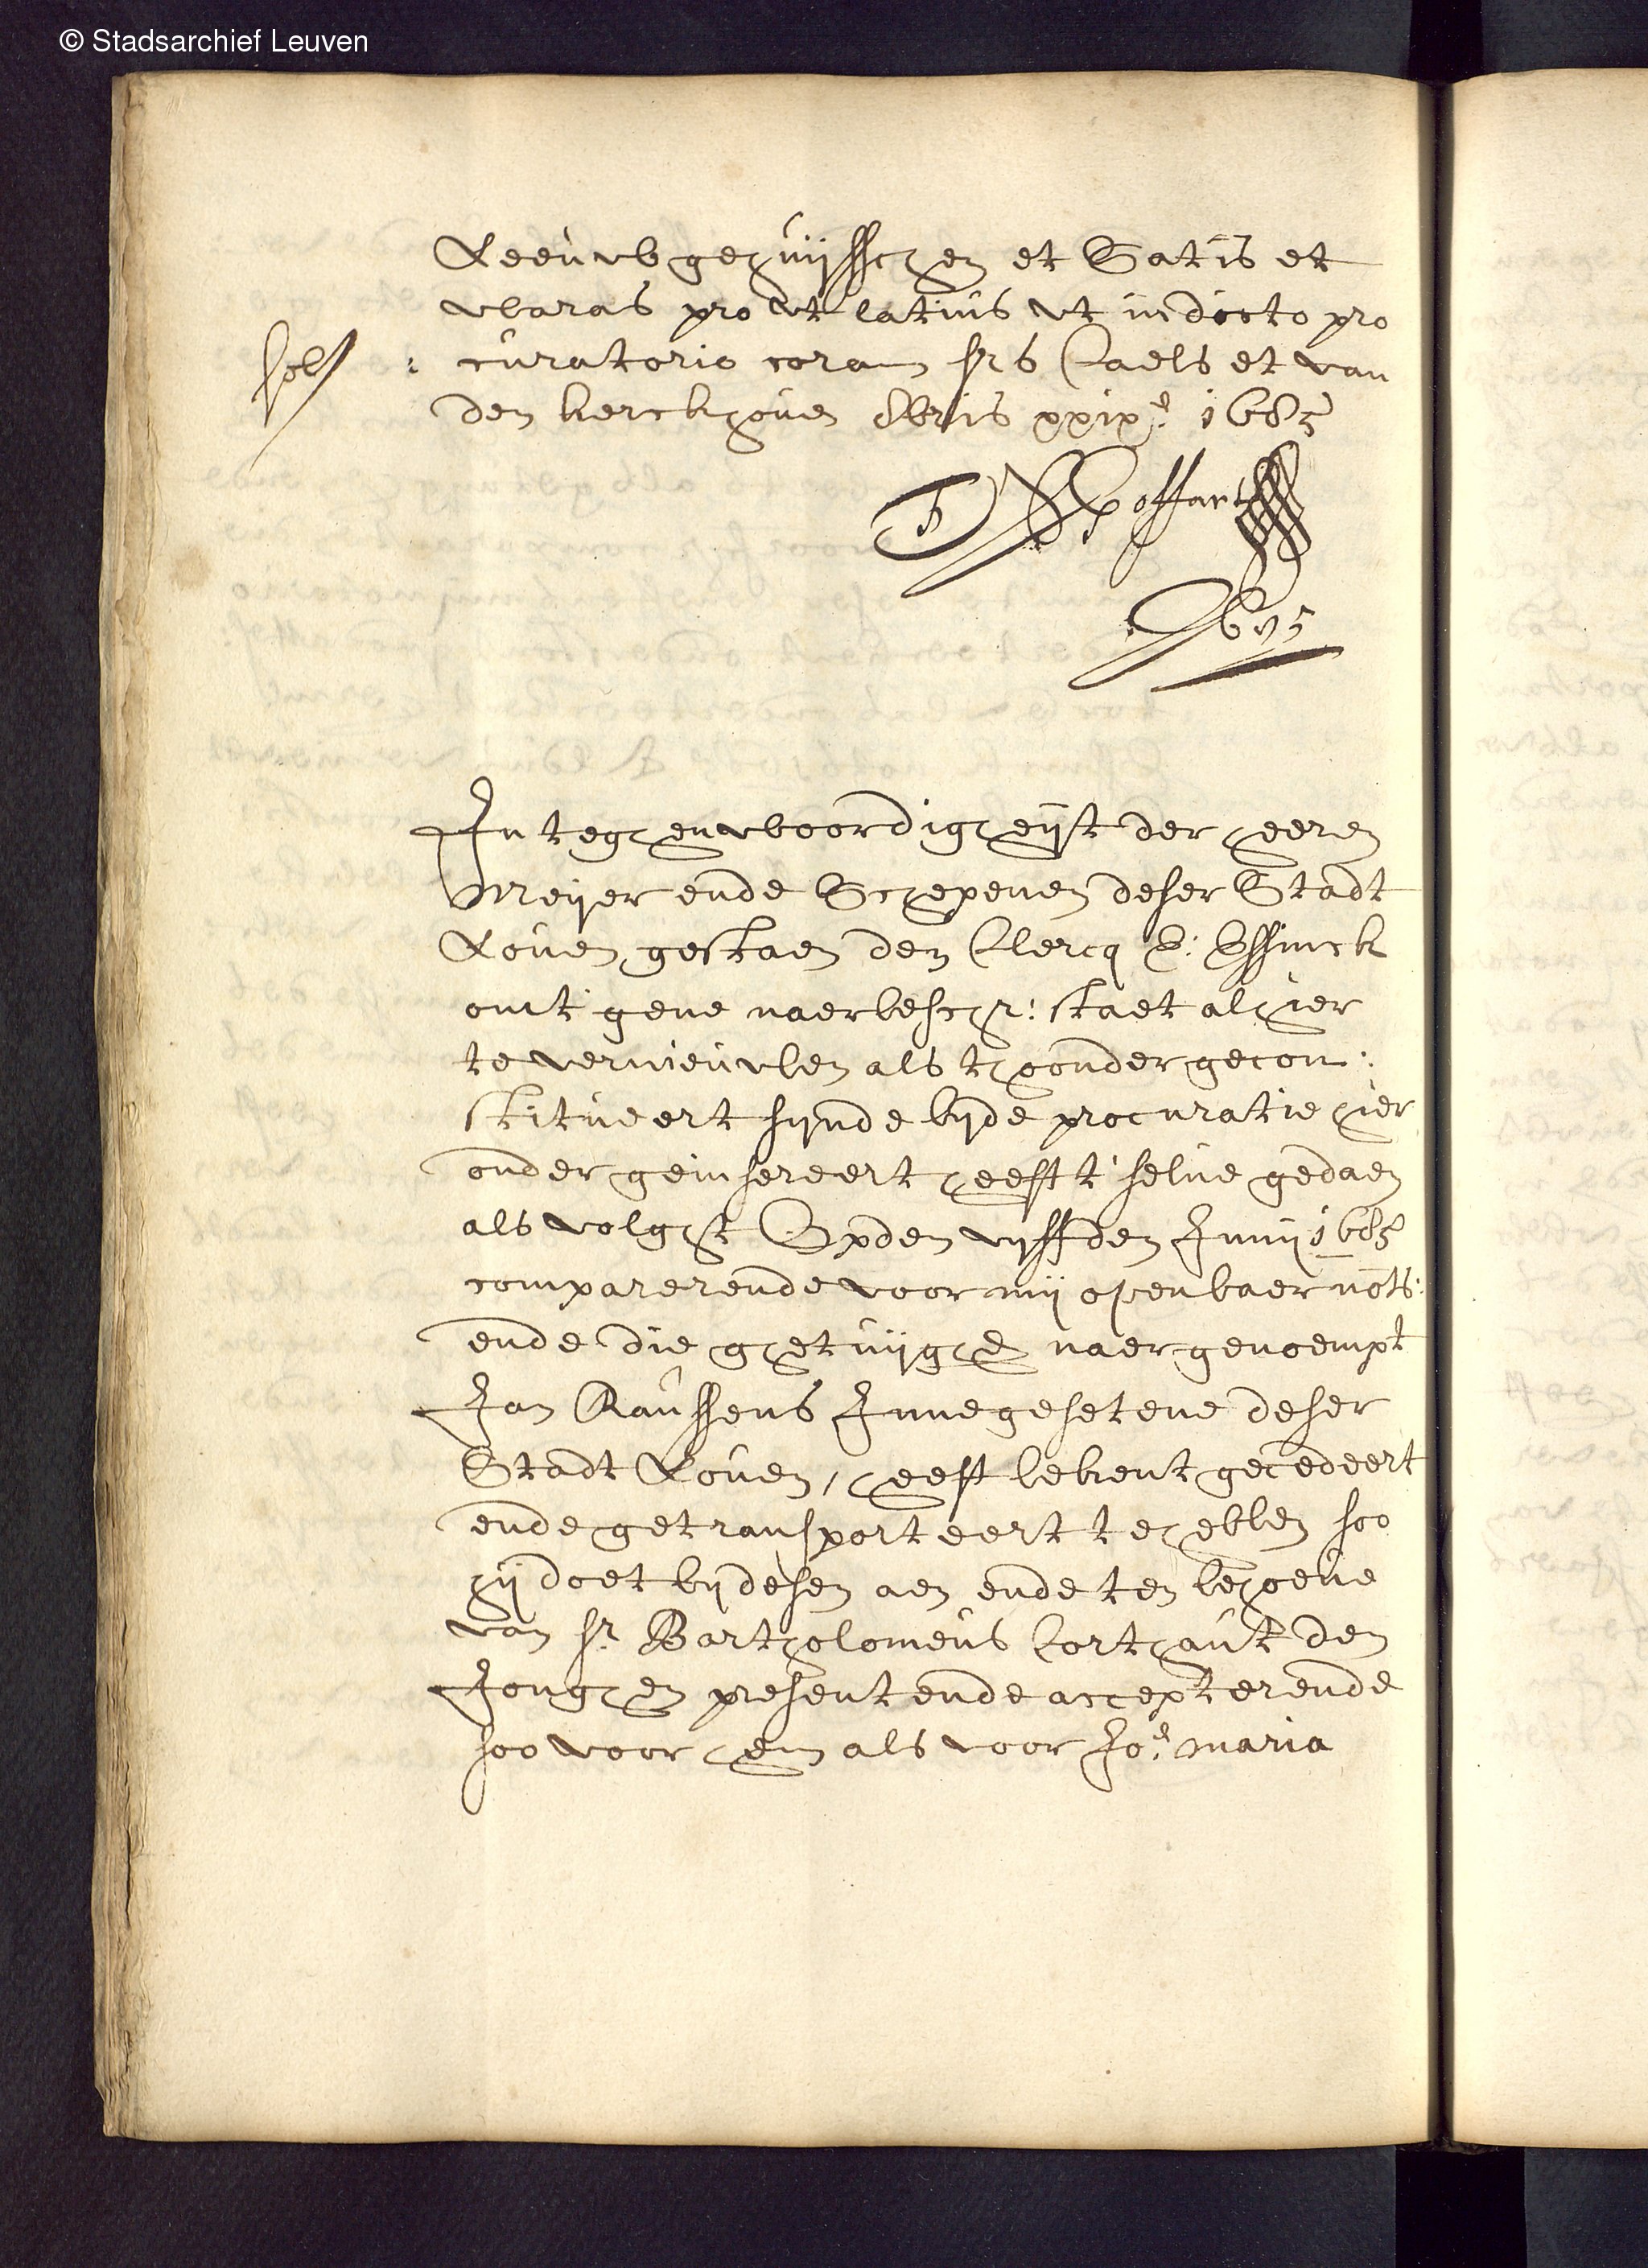 © Stadsarchief Leuven
Leeuwe gehuijsschen et Satis et
waras pro ut latius ut in dicto pro
solt
: curatorio coram hrs Caels et van
den kerckhoven 8bris xxixa. 1685
In teghenwoordigheijt der heeren
Meijer ende Schepenen deser Stadt
Loven gestaen den Clercq
omt' gene naerbeschr: staet alhier
te vernieuwen als thoonder gecon:
stitueert sijnde bijde procuratie hier
onder geinsereert heeft t'selve gedaen
als volght Opden vijffden Junij 1685
comparerende voor mij openbaer nots:
ende die ghetuijghen naergenoempt
Jan Raussens Innegesetene deser
Stadt Loven, heeft bekent gecedeert
ende getransporteert te hebben soo
hij doet bij desen aen ende ten behoeve
van sr Bartholomeus Corthaut den
Jonghen present ende accepterende
soo voor hem als voor Joe. maria